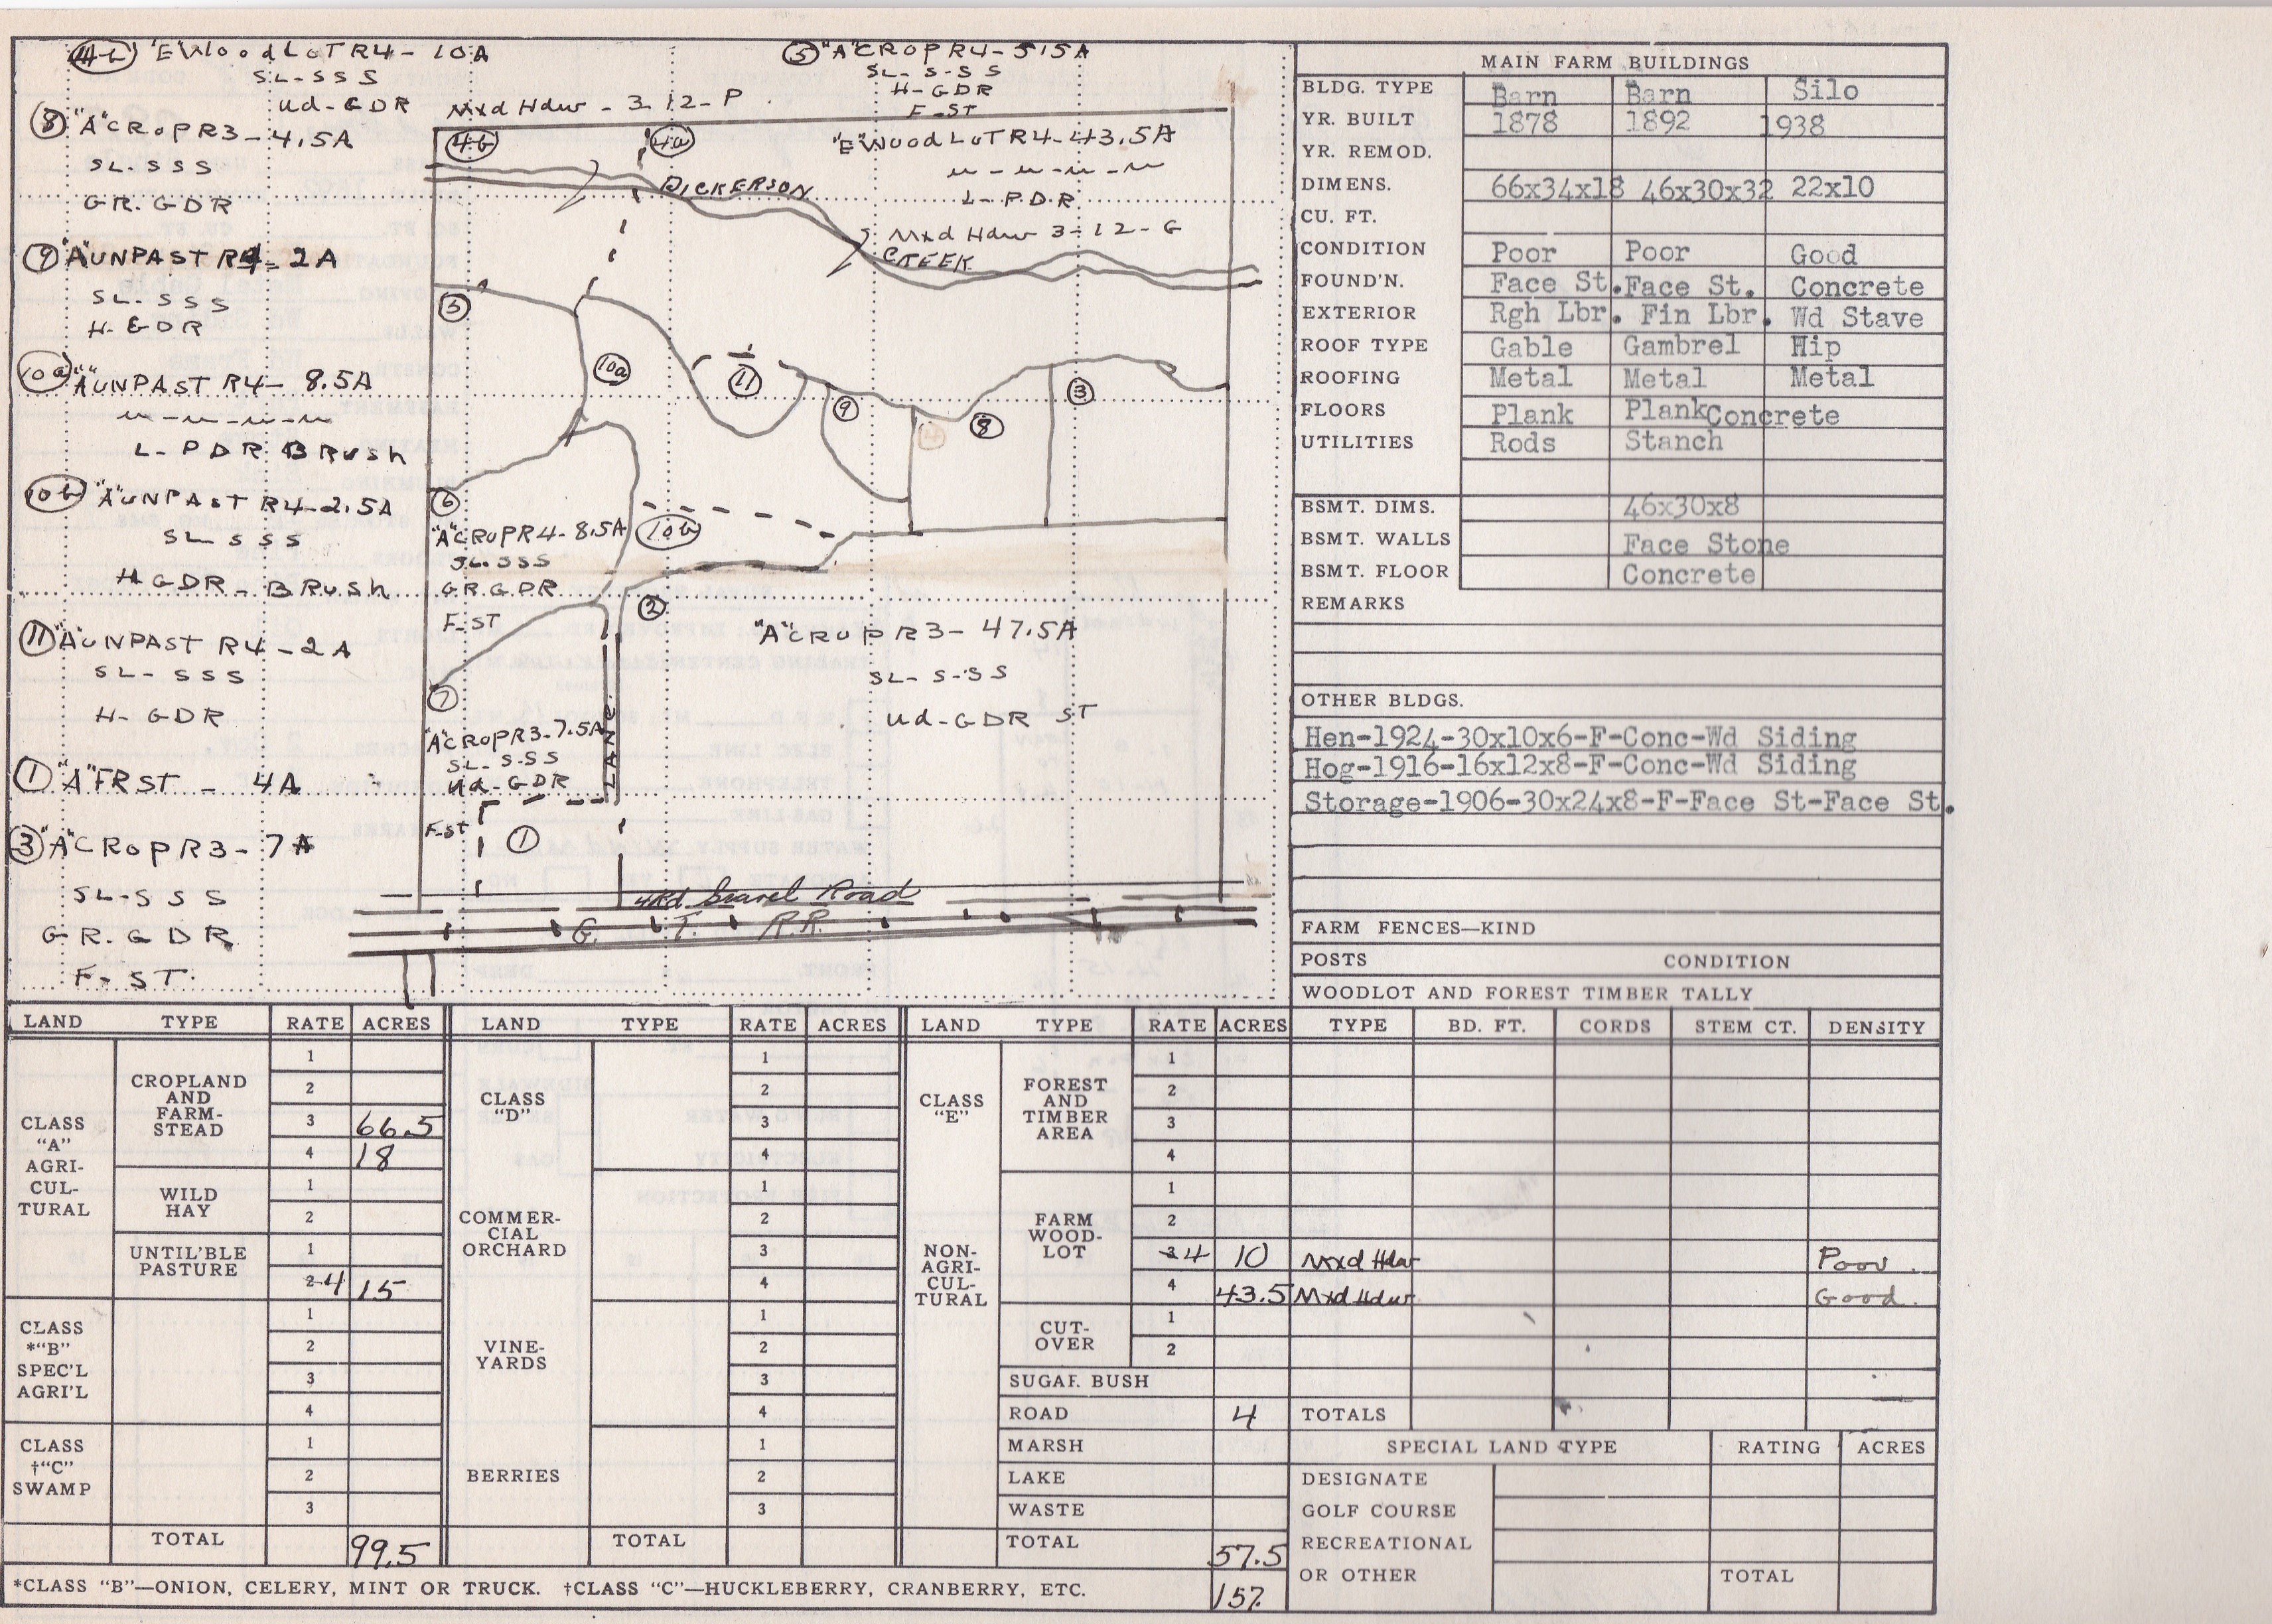 4-b "E" WoodLoT R4 - 10A
SL - S S S
Ud - GDR
Mxd Hdw - 3 12 - P
5 "A" CROP R4 - 5.5A
SL - S - S S
H - GDR
F - ST
8 "A" CROP R3 - 4.5A
SL. SSS
GR. GDR
9 "A" UNPAST R4 - 2A
SL - SSS
H. GDR
10a "A" UNPAST R4 - 8.5A
L - PDR BRush
10b "A" UNPAST R4 - 2.5A
SL SSS
H GDR - BRush
11 "A" UNPAST R4 - 2A
SL - SSS
H - GDR
1 "A" FRST - 4A
3 "A" CROP R3 - 7A
SL - S S S
GR. GDR
F - ST.
4b
4a
"E" WoodLoT R4 - 43.5A
L - P.D.R
Mxd Hdw 3 - 12 - G
DICKERSON
CREEK
5
10a
11
9
4
8
3
6
"A" CROP R4 - 8.5A
SL. SSS
GR. GDR
F. ST
10b
2
"A" CROP R3 - 47.5A
SL - S - SS
Ud - GDR ST
7
"A" CROP R3 - 7.5A
SL - S-SS
Ud - GDR
F-st
LANE
1
4Rd Gravel Road
G. T. R.R.
MAIN FARM BUILDINGS
BLDG. TYPE Barn Barn Silo
YR. BUILT 1878 1892 1938
YR. REMOD.
DIMENS. 66x34x18 46x30x32 22x10
CU. FT.
CONDITION Poor Poor Good
FOUND'N. Face St. Face St. Concrete
EXTERIOR Rgh Lbr. Fin Lbr. Wd Stave
ROOF TYPE Gable Gambrel Hip
ROOFING Metal Metal Metal
FLOORS Plank Plank Concrete
UTILITIES Rods Stanch
BSMT. DIMS. 46x30x8
BSMT. WALLS Face Stone
BSMT. FLOOR Concrete
REMARKS
OTHER BLDGS.
Hen-1924-30x10x6-F-Conc-Wd Siding
Hog-1916-16x12x8-F-Conc-Wd Siding
Storage-1906-30x24x8-F-Face St-Face St.
FARM FENCES—KIND
POSTS CONDITION
WOODLOT AND FOREST TIMBER TALLY
LAND TYPE RATE ACRES LAND TYPE RATE ACRES LAND TYPE RATE ACRES TYPE BD. FT. CORDS STEM CT. DENSITY
CLASS "A" AGRI- CUL- TURAL
CROPLAND AND FARM- STEAD
1
2
3 66.5
4 18
WILD HAY
1
2
UNTIL'BLE PASTURE
1
2 4 15
CLASS *"B" SPEC'L AGRI'L
1
2
3
4
CLASS †"C" SWAMP
1
2
3
TOTAL 99.5
CLASS "D"
1
2
3
4
COMMER- CIAL ORCHARD
1
2
3
4
VINE- YARDS
1
2
3
4
BERRIES
1
2
3
TOTAL
CLASS "E"
NON- AGRI- CUL- TURAL
FOREST AND TIMBER AREA
1
2
3
4
FARM WOOD- LOT
1
2
3 4 10 Mxd Hdw Poor
4 43.5 Mxd Hdw Good
CUT- OVER
1
2
SUGAR BUSH
ROAD 4 TOTALS
MARSH
LAKE
WASTE
TOTAL 57.5
157.
SPECIAL LAND TYPE RATING ACRES
DESIGNATE
GOLF COURSE
RECREATIONAL
OR OTHER TOTAL
*CLASS "B"—ONION, CELERY, MINT OR TRUCK. †CLASS "C"—HUCKLEBERRY, CRANBERRY, ETC.